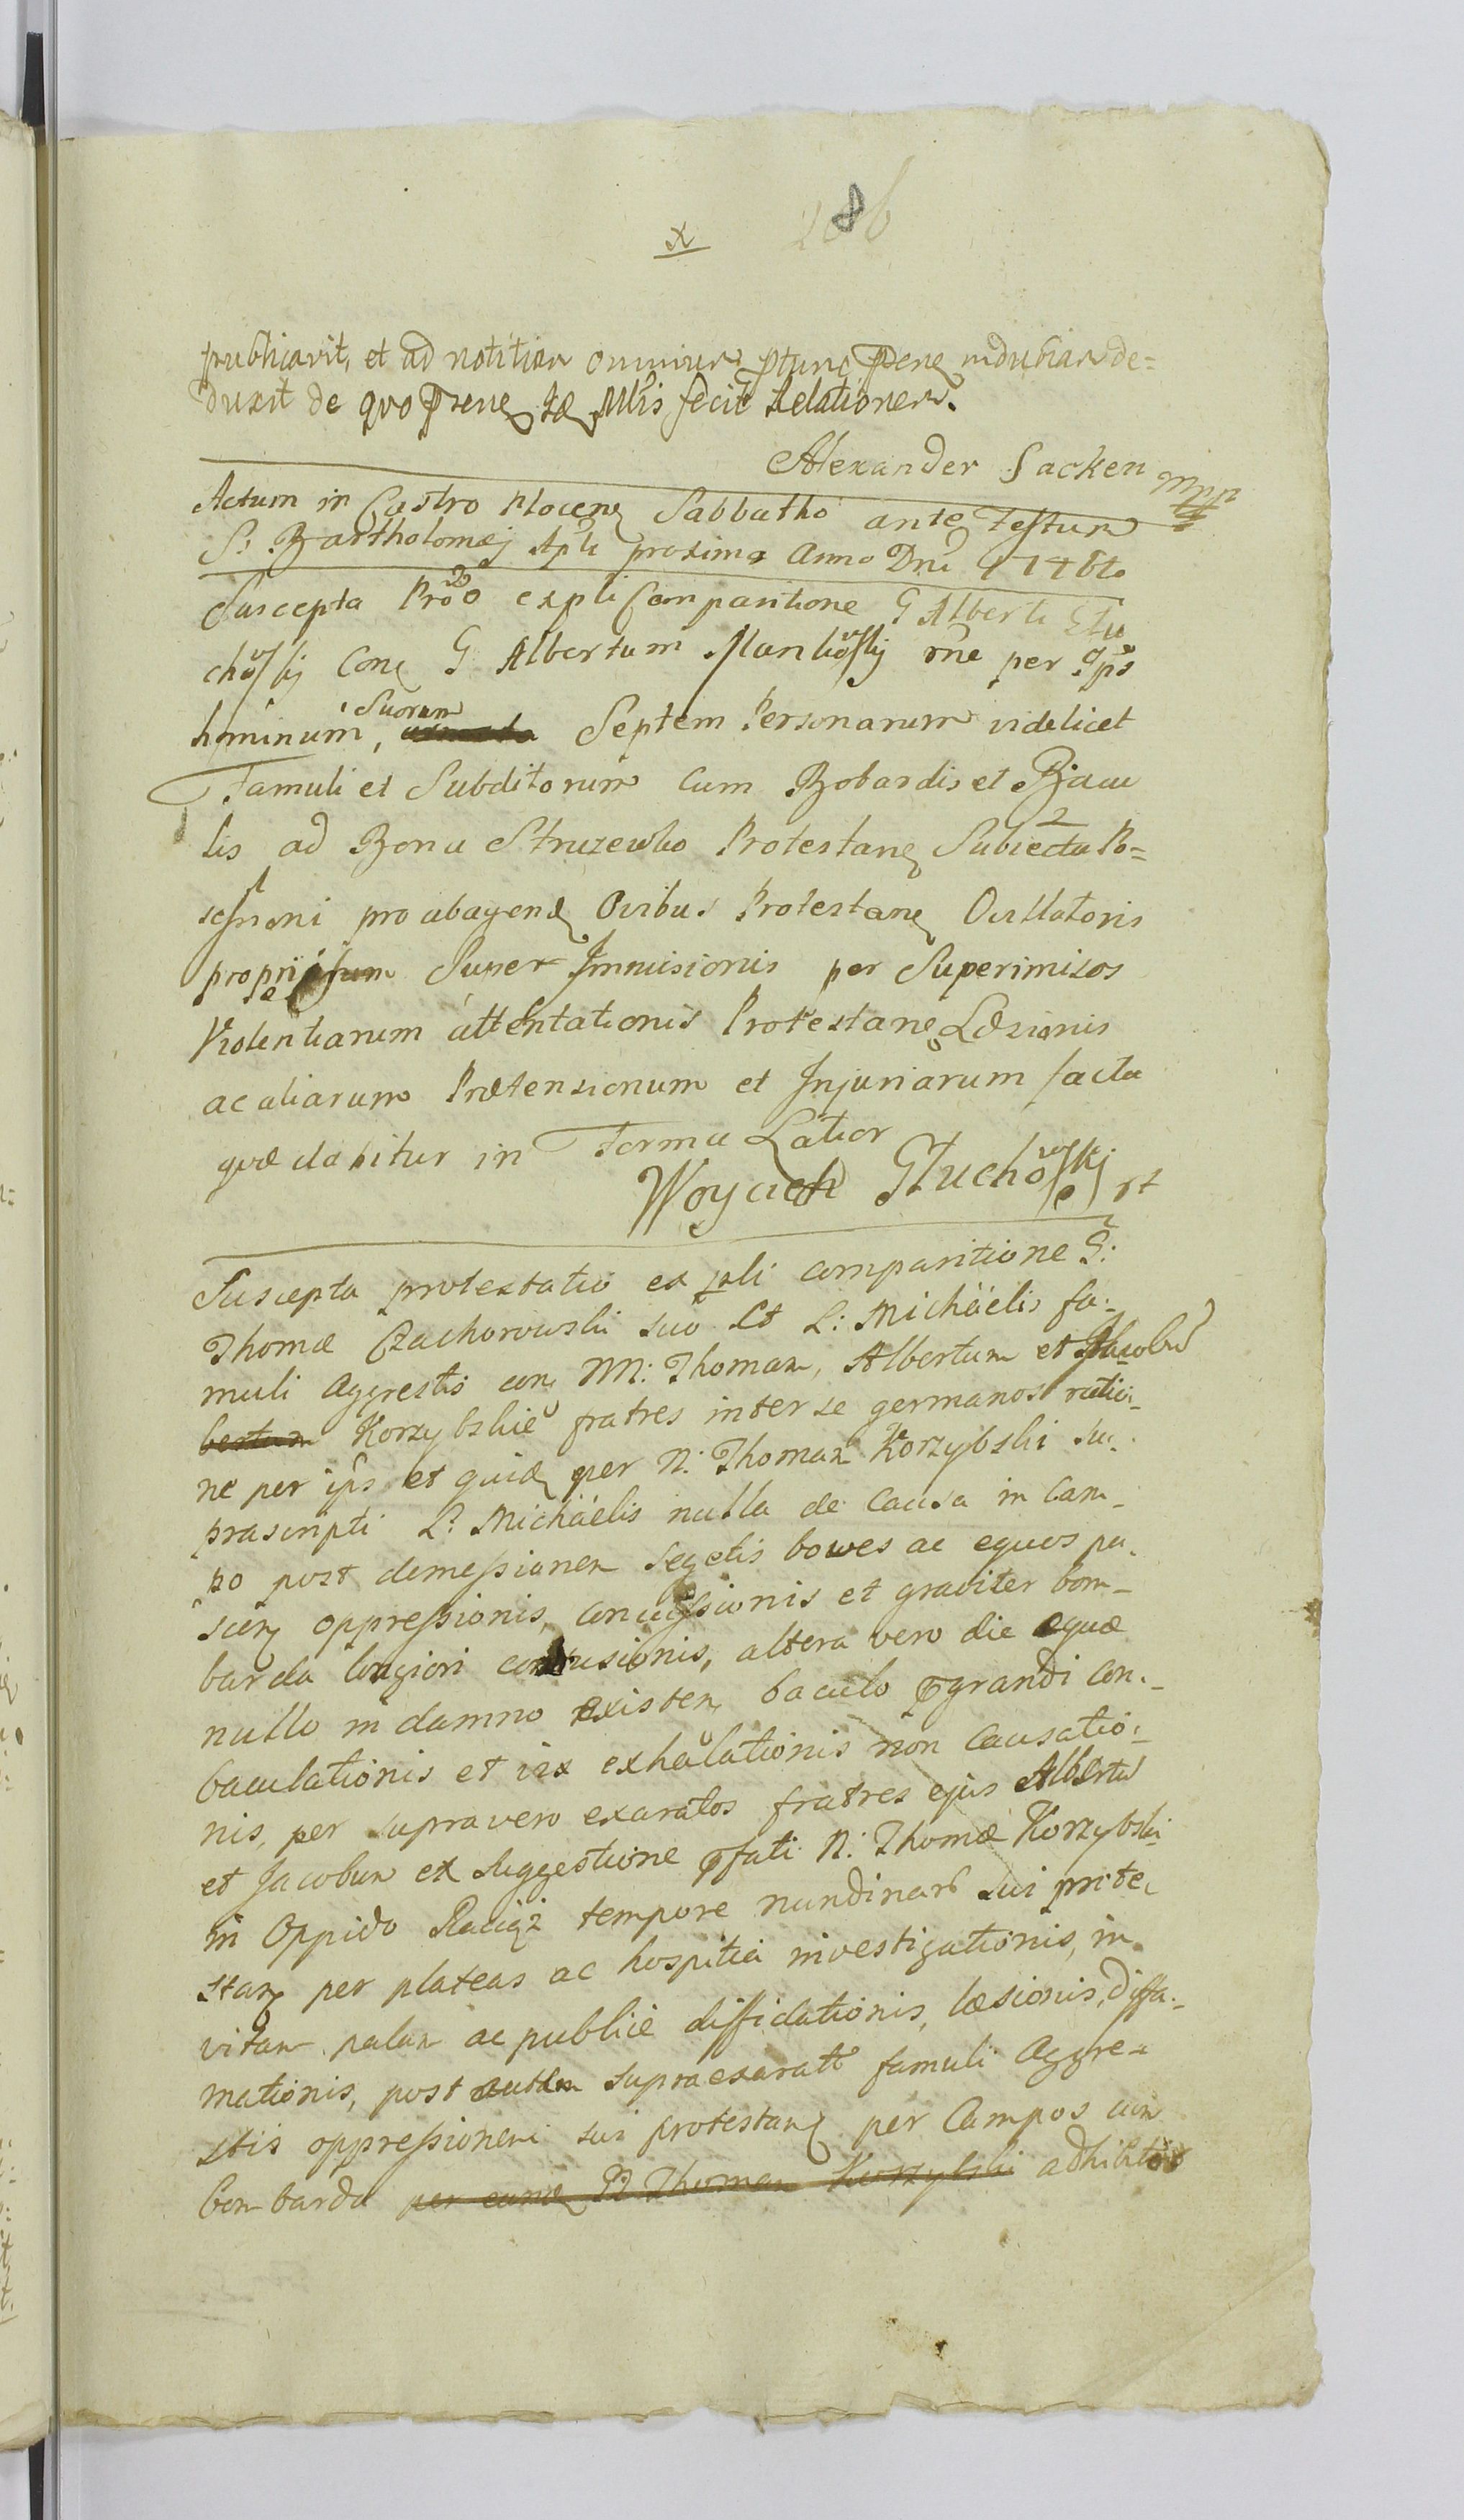 x 286
publicavit, et ad notitiam omnium ptunc pene indubiam de=
duxit de quo prsene tae Mltis fecit Relationem.
Alexander Sacken mpp
Actum in Castro Plocen Sabbatho ante Festum
S. Bartholomæj Apli proximo Anno Dni 1748to
Suscepta Prõo expli Comparitione G Alberti Głu
chowskj Con G Albertum Mankowskj rne per Ips
hominum, Suorum Septem Personarum videlicet
Famuli et Subditorum cum Bobardis et Bjacu
lis ad Bona Struzewko Protestan Subiecta Po=
ssessioni pro abagend Ovibus Protestan Ovillatoris
proprij Super Immisionis per Superimisos
Violentiarum attentationis Protestan Læzionis
ac aliarum Prætensionum et Injuriarum facta
quæ dabitur in Forma Latior
Woyciech Głuchowskj
Suscepta protestatio ex pli comparitione G:
Thomæ Czachorowski suo Et L: Michäelis fa:
muli Aggrestis con NN: Thomam, Albertum et Jacobum
bertum Korzybskie fratres inter se germanos ratio:
ne per ips et quid per N: Thomam Korzybski su:
prascripti L: Michäelis nulla de Causa in Cam-
po post demessionem segetis bowes ac equos pa-
scen oppressionis, concussionis et graviter bom-
barda longiori contusionis, altera vero die æque
nullo in damno existen baculo pgrandi con:-
baculationis et vix exhalationis non Causatio:
nis, per supra vero exaratos fratres ejus Albertum
et Jacobum ex Suggestione pfati N: Thomæ Korzybski
in Oppido Raciąż tempore nundinar sui prote-
stan per plateas ac hospitia investigationis, in
vitam palam ac publice diffidationis, læsionis, diffa:-
mationis, post autem supraexarati famuli Aggre-
stis oppressionem sui protestan per Campos cum
bombarda per eund N Thomam Korzybski adhibitio